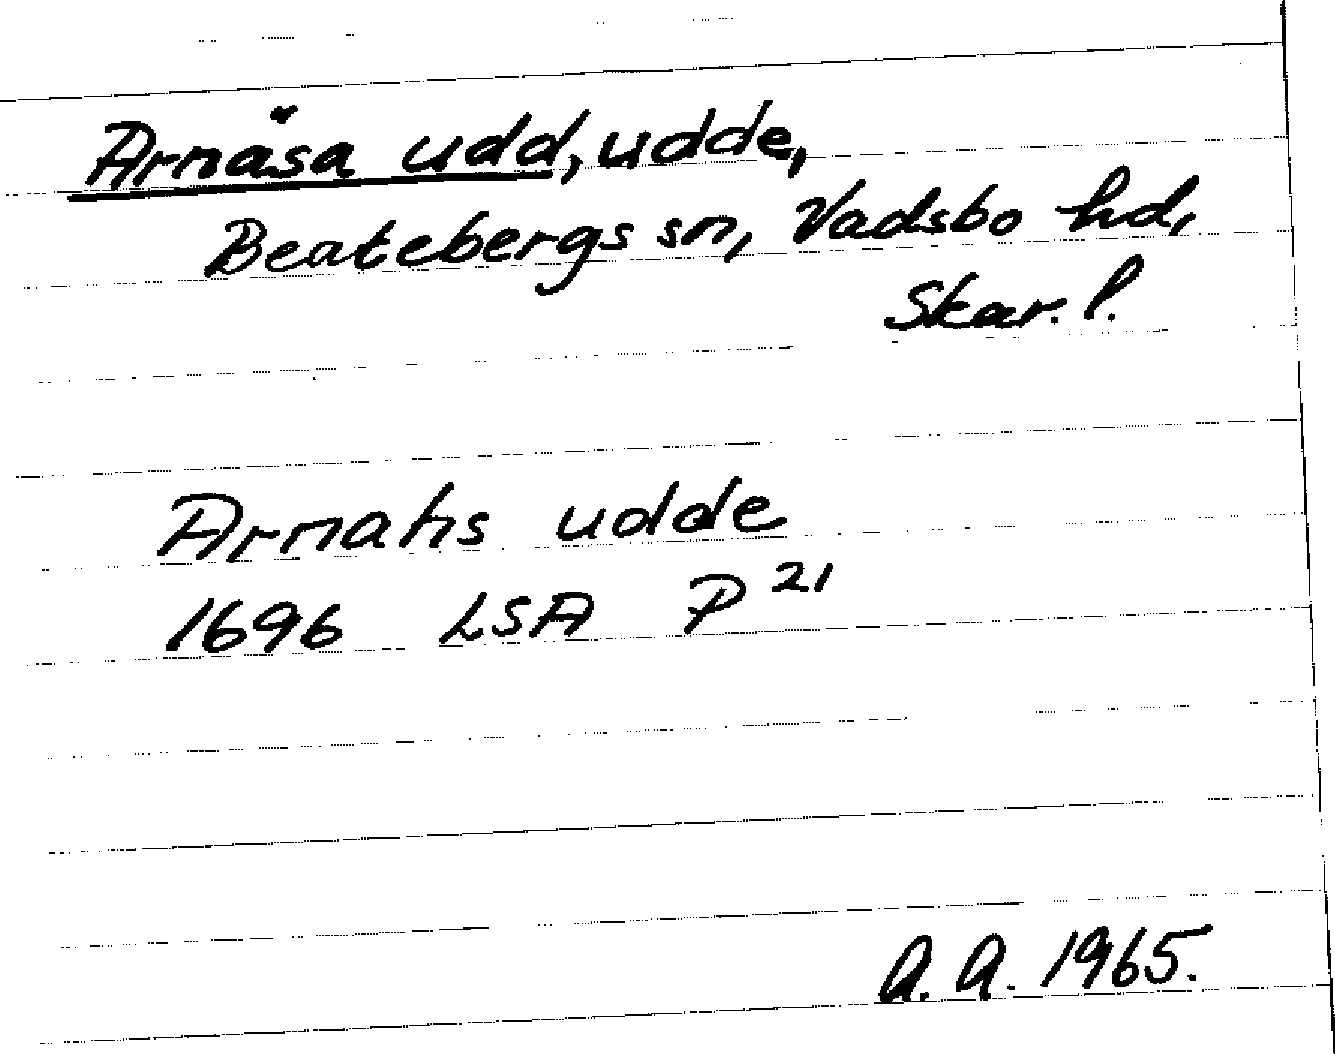 Arnäsa udd, udde,
Beatebergs sn, Vadsbo hd,
Skar. l.
Arnahs udde
1696 LSA P 21
A. A. 1965.